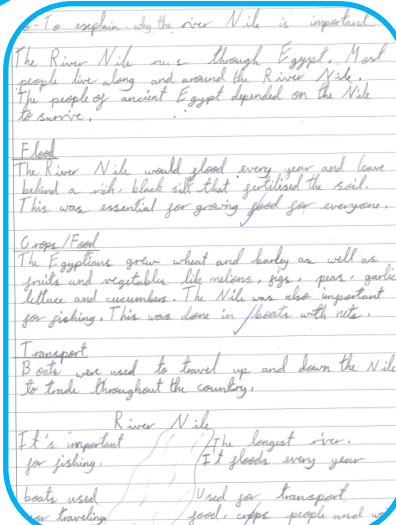 -To explain why the river Nile is important
The River Nile runs through Egypt. Most
people live along and around the River Nile.
The people of ancient Egypt depended on the Nile
to survive.
Flood
The River Nile would flood every year and leave
behind a rich, black silt that fertilised the soil.
This was essential for growing food for everyone.
Crops/Food
The Egyptians grew wheat and barley as well as
fruits and vegetables like melions, figs, peas, garlic
lettuce and cucumbers. The Nile was also important
for fishing. This was done in boats with nets.
Transport
Boats were used to travel up and down the Nile
to trade throughout the country.
River Nile
It's important
for fishing.
boats used
for traveling
The longest river.
It floods every year
Used for transport
food, crops people and